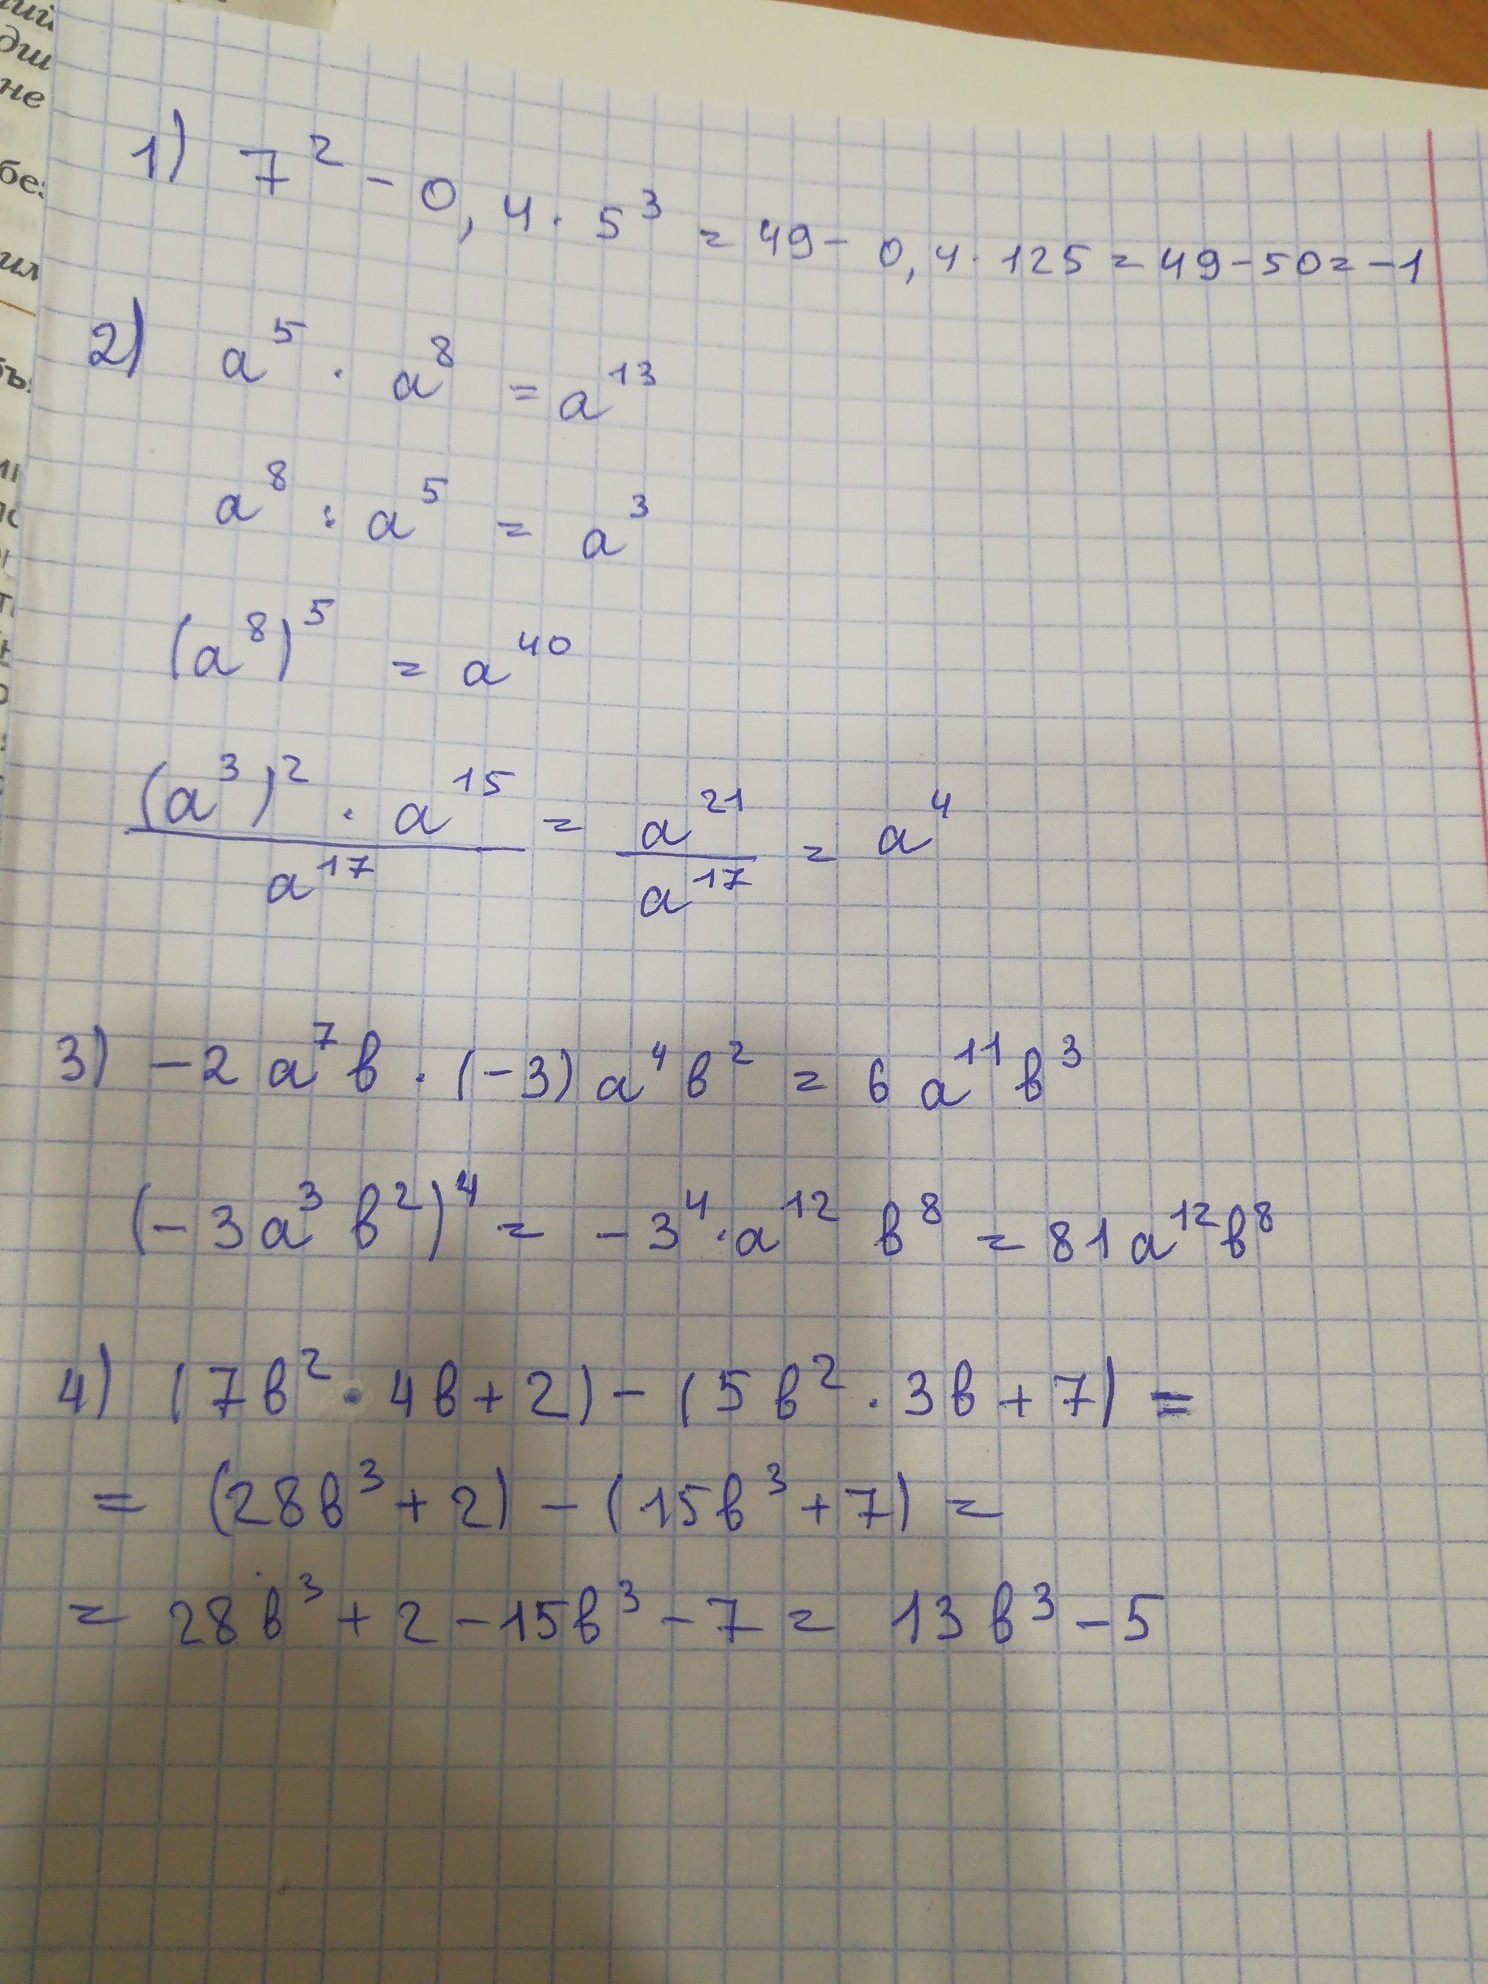 ший
дш
не
без
1) 7² - 0,4 · 5³ = 49 - 0,4 · 125 = 49 - 50 = -1
2) a⁵ · a⁸ = a¹³
a⁸ : a⁵ = a³
(a⁸)⁵ = a⁴⁰
(a³)² · a¹⁵ / a¹⁷ = a²¹ / a¹⁷ = a⁴
3) -2a⁷в · (-3)a⁴в² = 6a¹¹в³
(-3a³в²)⁴ = -3⁴ · a¹² в⁸ = 81a¹²в⁸
4) (7в² · 4в + 2) - (5в² · 3в + 7) =
= (28в³ + 2) - (15в³ + 7) =
= 28в³ + 2 - 15в³ - 7 = 13в³ - 5